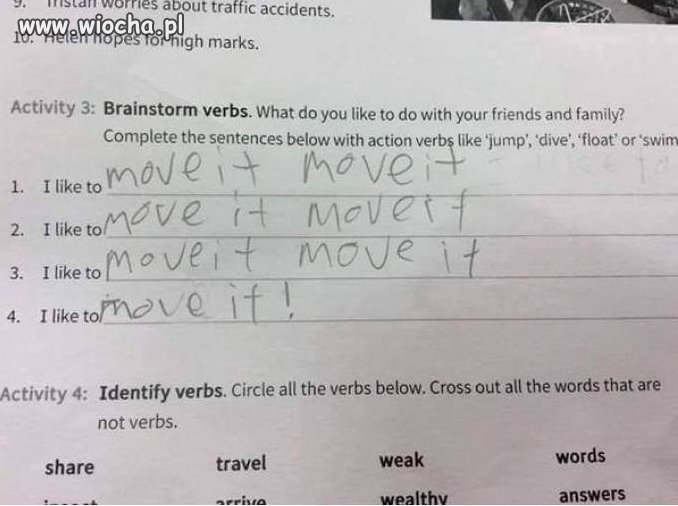 9. Tristan worries about traffic accidents.
www.wiocha.pl
10. Helen hopes for high marks.
Activity 3: Brainstorm verbs. What do you like to do with your friends and family?
Complete the sentences below with action verbs like 'jump', 'dive', 'float' or 'swim
1. I like to move it move it
2. I like to move it move it
3. I like to move it move it
4. I like to move it!
Activity 4: Identify verbs. Circle all the verbs below. Cross out all the words that are
not verbs.
share travel weak words
arrive wealthy answers